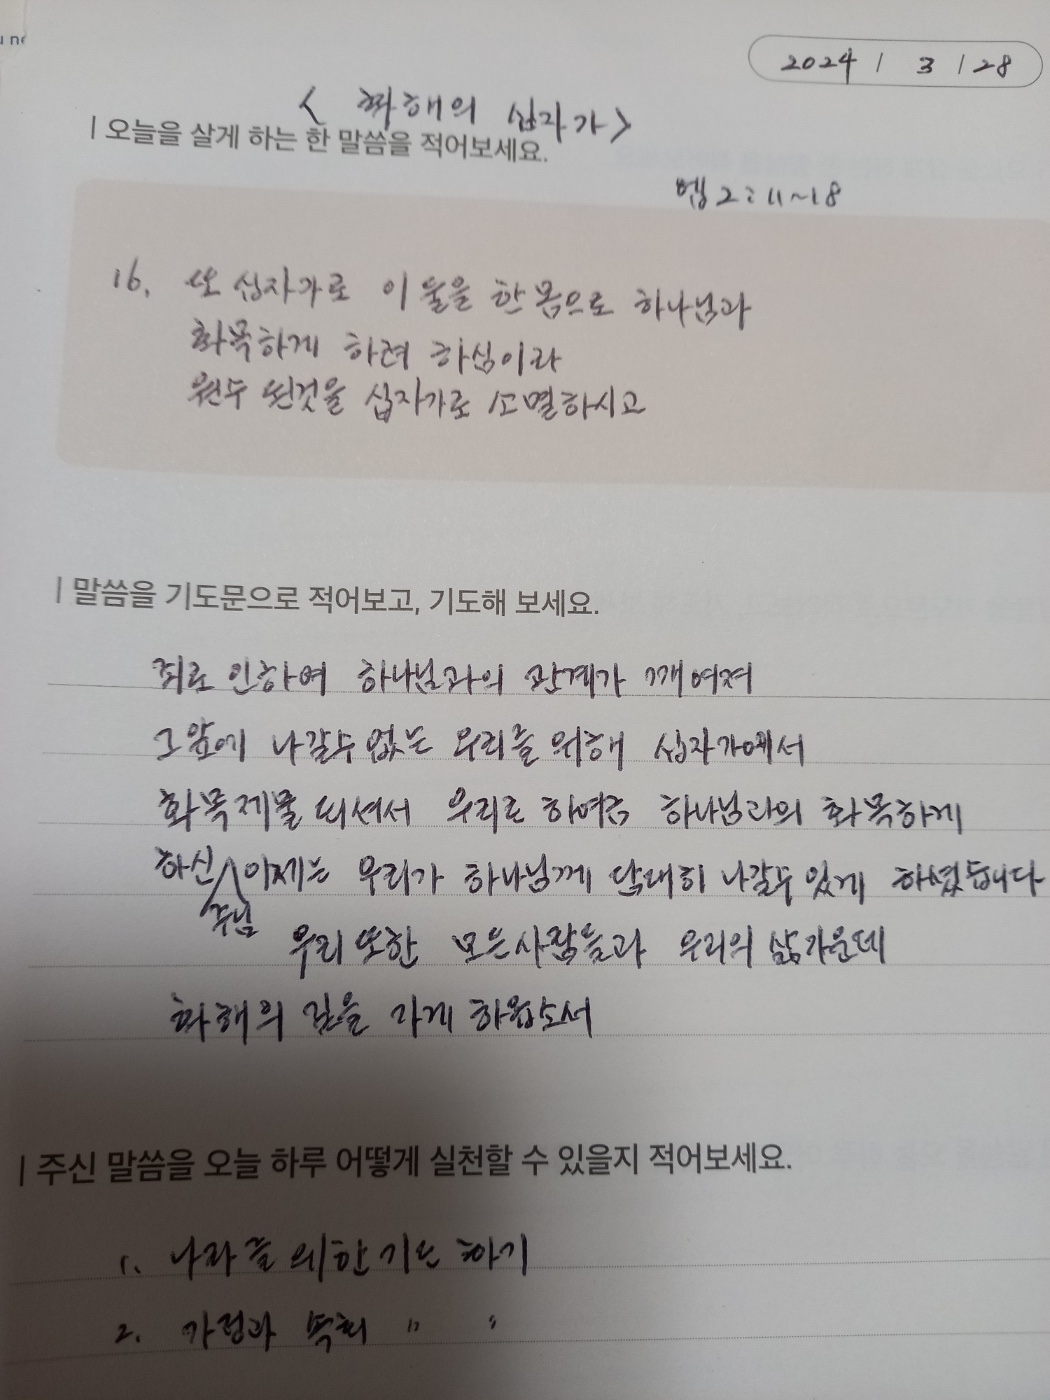 2024 / 3 / 28
< 화해의 십자가 >
| 오늘을 살게 하는 한 말씀을 적어보세요.
엡 2:11~18
16. 또 십자가로 이 둘을 한 몸으로 하나님과
화목하게 하려 하심이라
원수 된것을 십자가로 소멸하시고
| 말씀을 기도문으로 적어보고, 기도해 보세요.
죄로 인하여 하나님과의 관계가 깨여져
그앞에 나갈수 없는 우리를 위해 십자가에서
화목제물 되셔서 우리로 하여금 하나님과의 화목하게
하신 이제는 우리가 하나님께 담대히 나갈수 있게 하셨습니다
주님
우리 또한 모든사람들과 우리의 삶가운데
화해의 길을 가게 하옵소서
| 주신 말씀을 오늘 하루 어떻게 실천할 수 있을지 적어보세요.
1. 나라를 위한 기도 하기
2. 가정과 속회 〃 〃